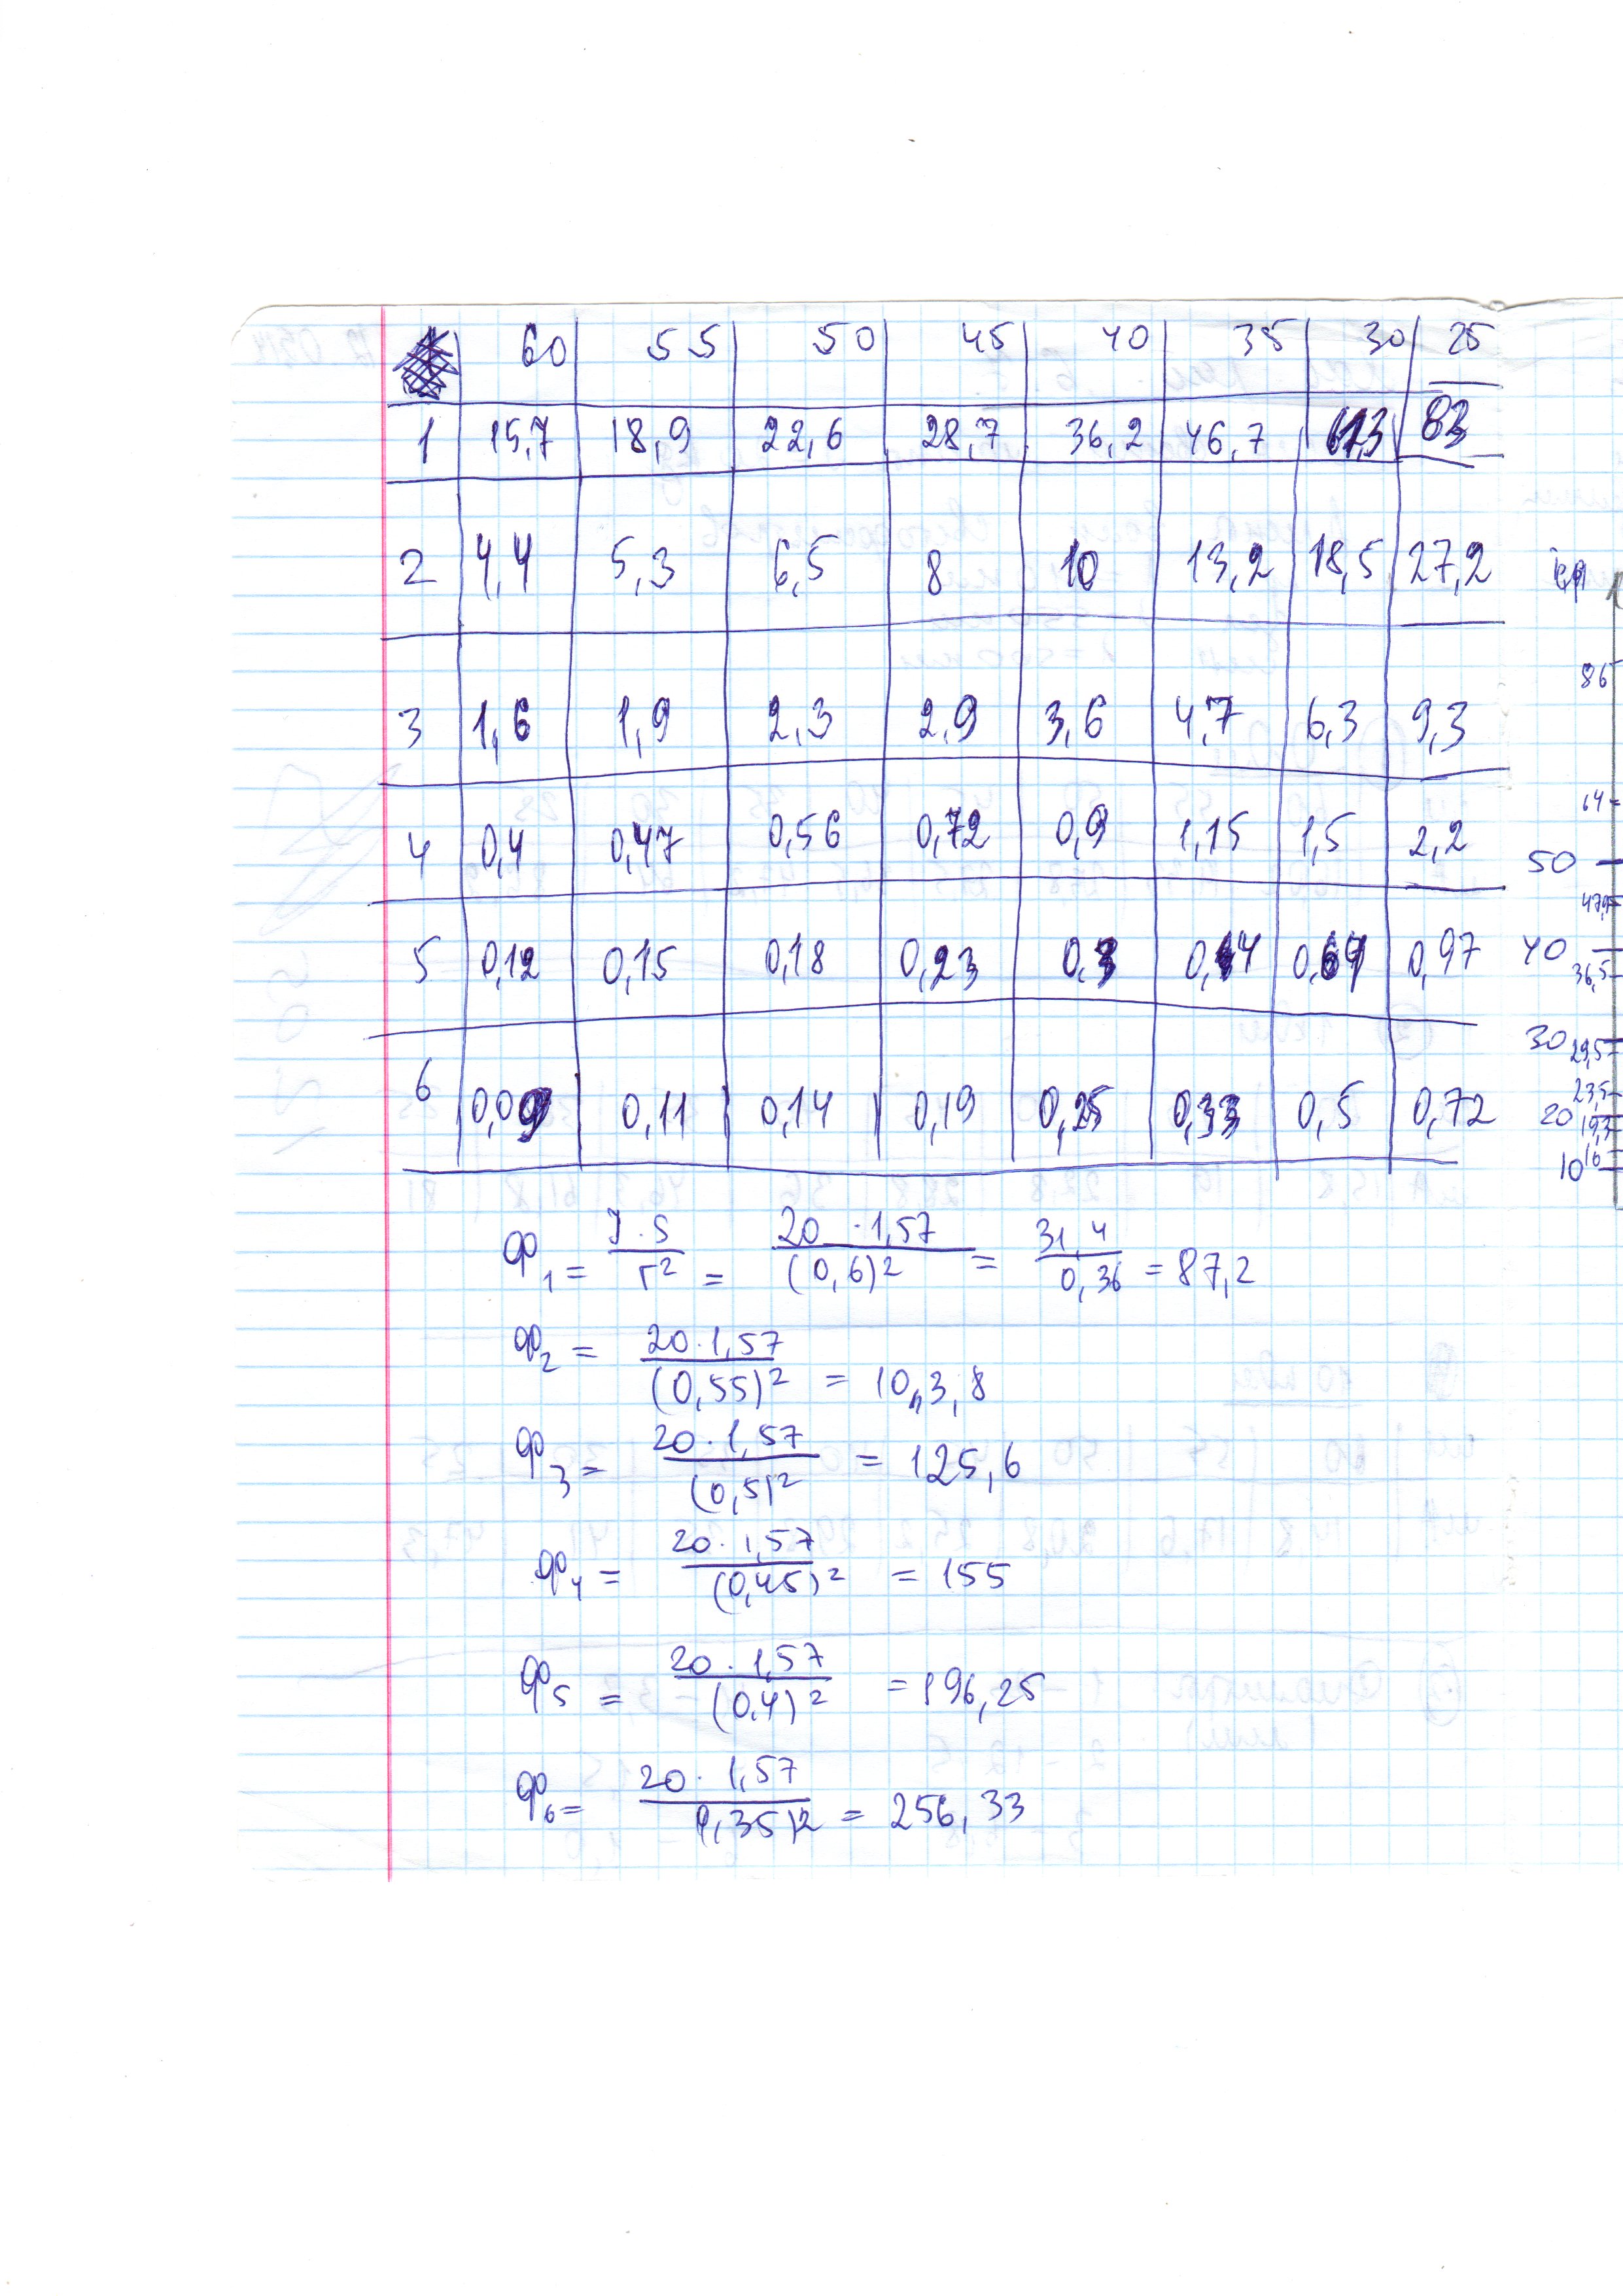 60 55 50 45 40 35 30 25
1 15,7 18,9 22,6 28,7 36,2 46,7 61,3 83
2 4,4 5,3 6,5 8 10 13,2 18,5 27,2
3 1,6 1,9 2,3 2,9 3,6 4,7 6,3 9,3
4 0,4 0,47 0,56 0,72 0,9 1,15 1,5 2,2
5 0,12 0,15 0,18 0,23 0,3 0,44 0,67 0,97
6 0,09 0,11 0,14 0,19 0,25 0,33 0,5 0,72
Ф1 = J·S / r² = 20 · 1,57 / (0,6)² = 31,4 / 0,36 = 87,2
Ф2 = 20·1,57 / (0,55)² = 10,3,8
Ф3 = 20·1,57 / (0,5)² = 125,6
Ф4 = 20·1,57 / (0,45)² = 155
Ф5 = 20·1,57 / (0,4)² = 196,25
Ф6 = 20·1,57 / (0,35)² = 256,33
86
64
50
47,9
40
36,5
30
29,5
23,5
20
19,3
16
10